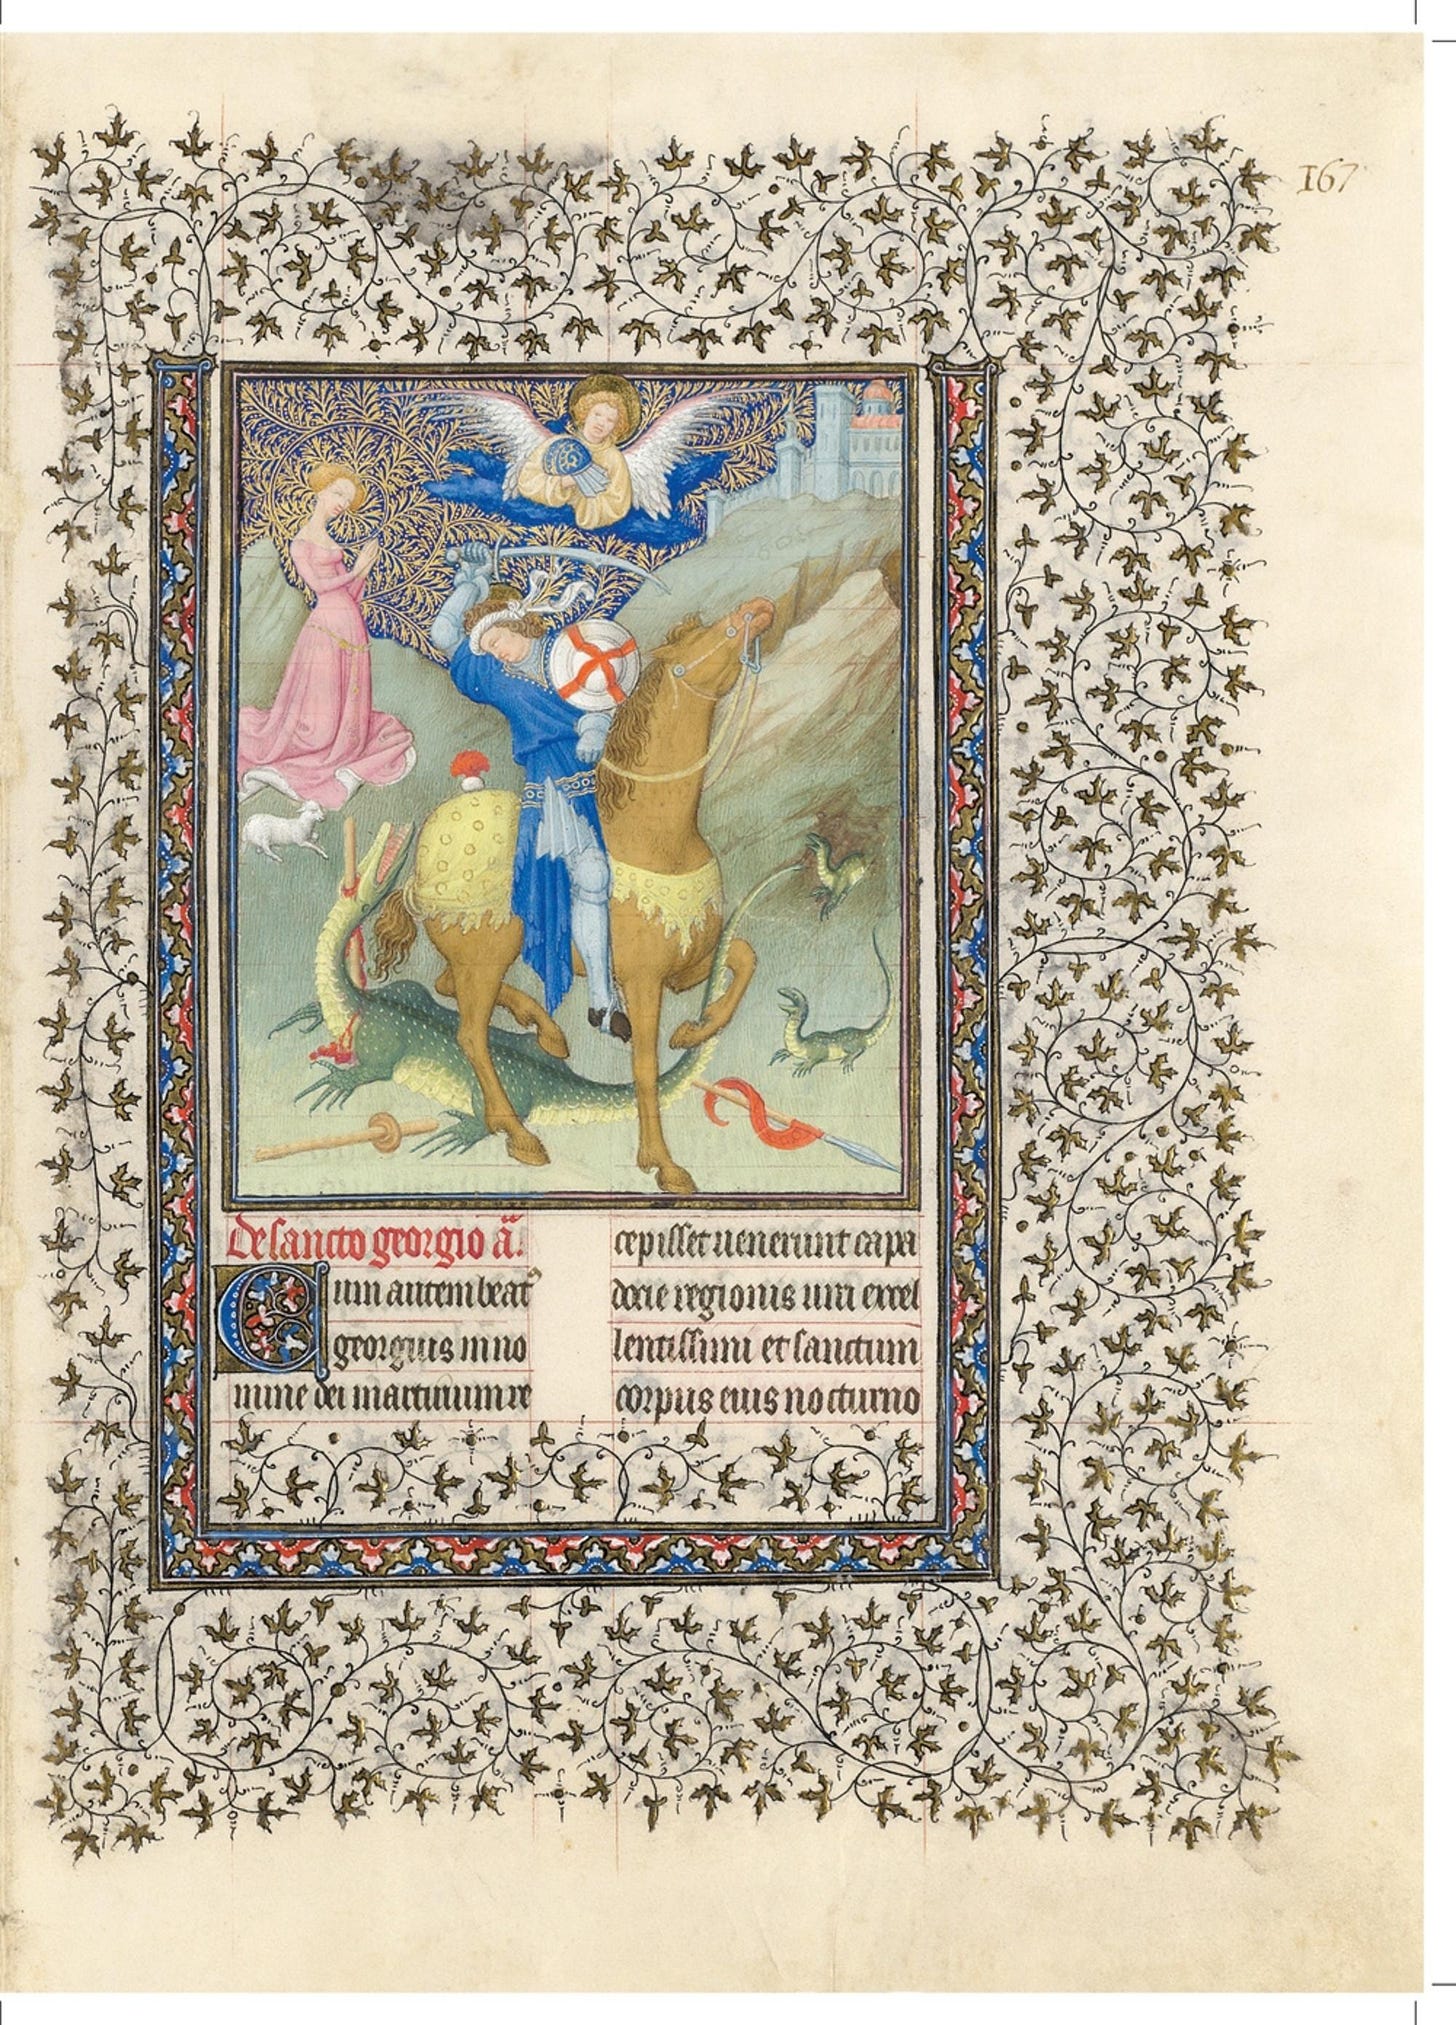 167
De sancto georgio añ.
Cum autem beat⁹
georgius in no
mine dei martirium re
cepisset uenerunt capa
docie regionis uiri excel
lentissimi et sanctum
corpus eius nocturno